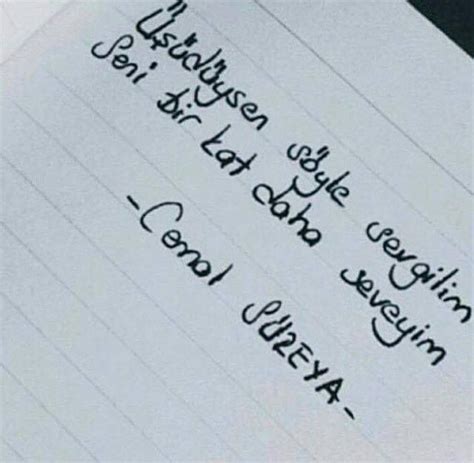 Üşüdüysen söyle sevgilim
Seni bir kat daha seveyim
- Cemal SÜREYA -